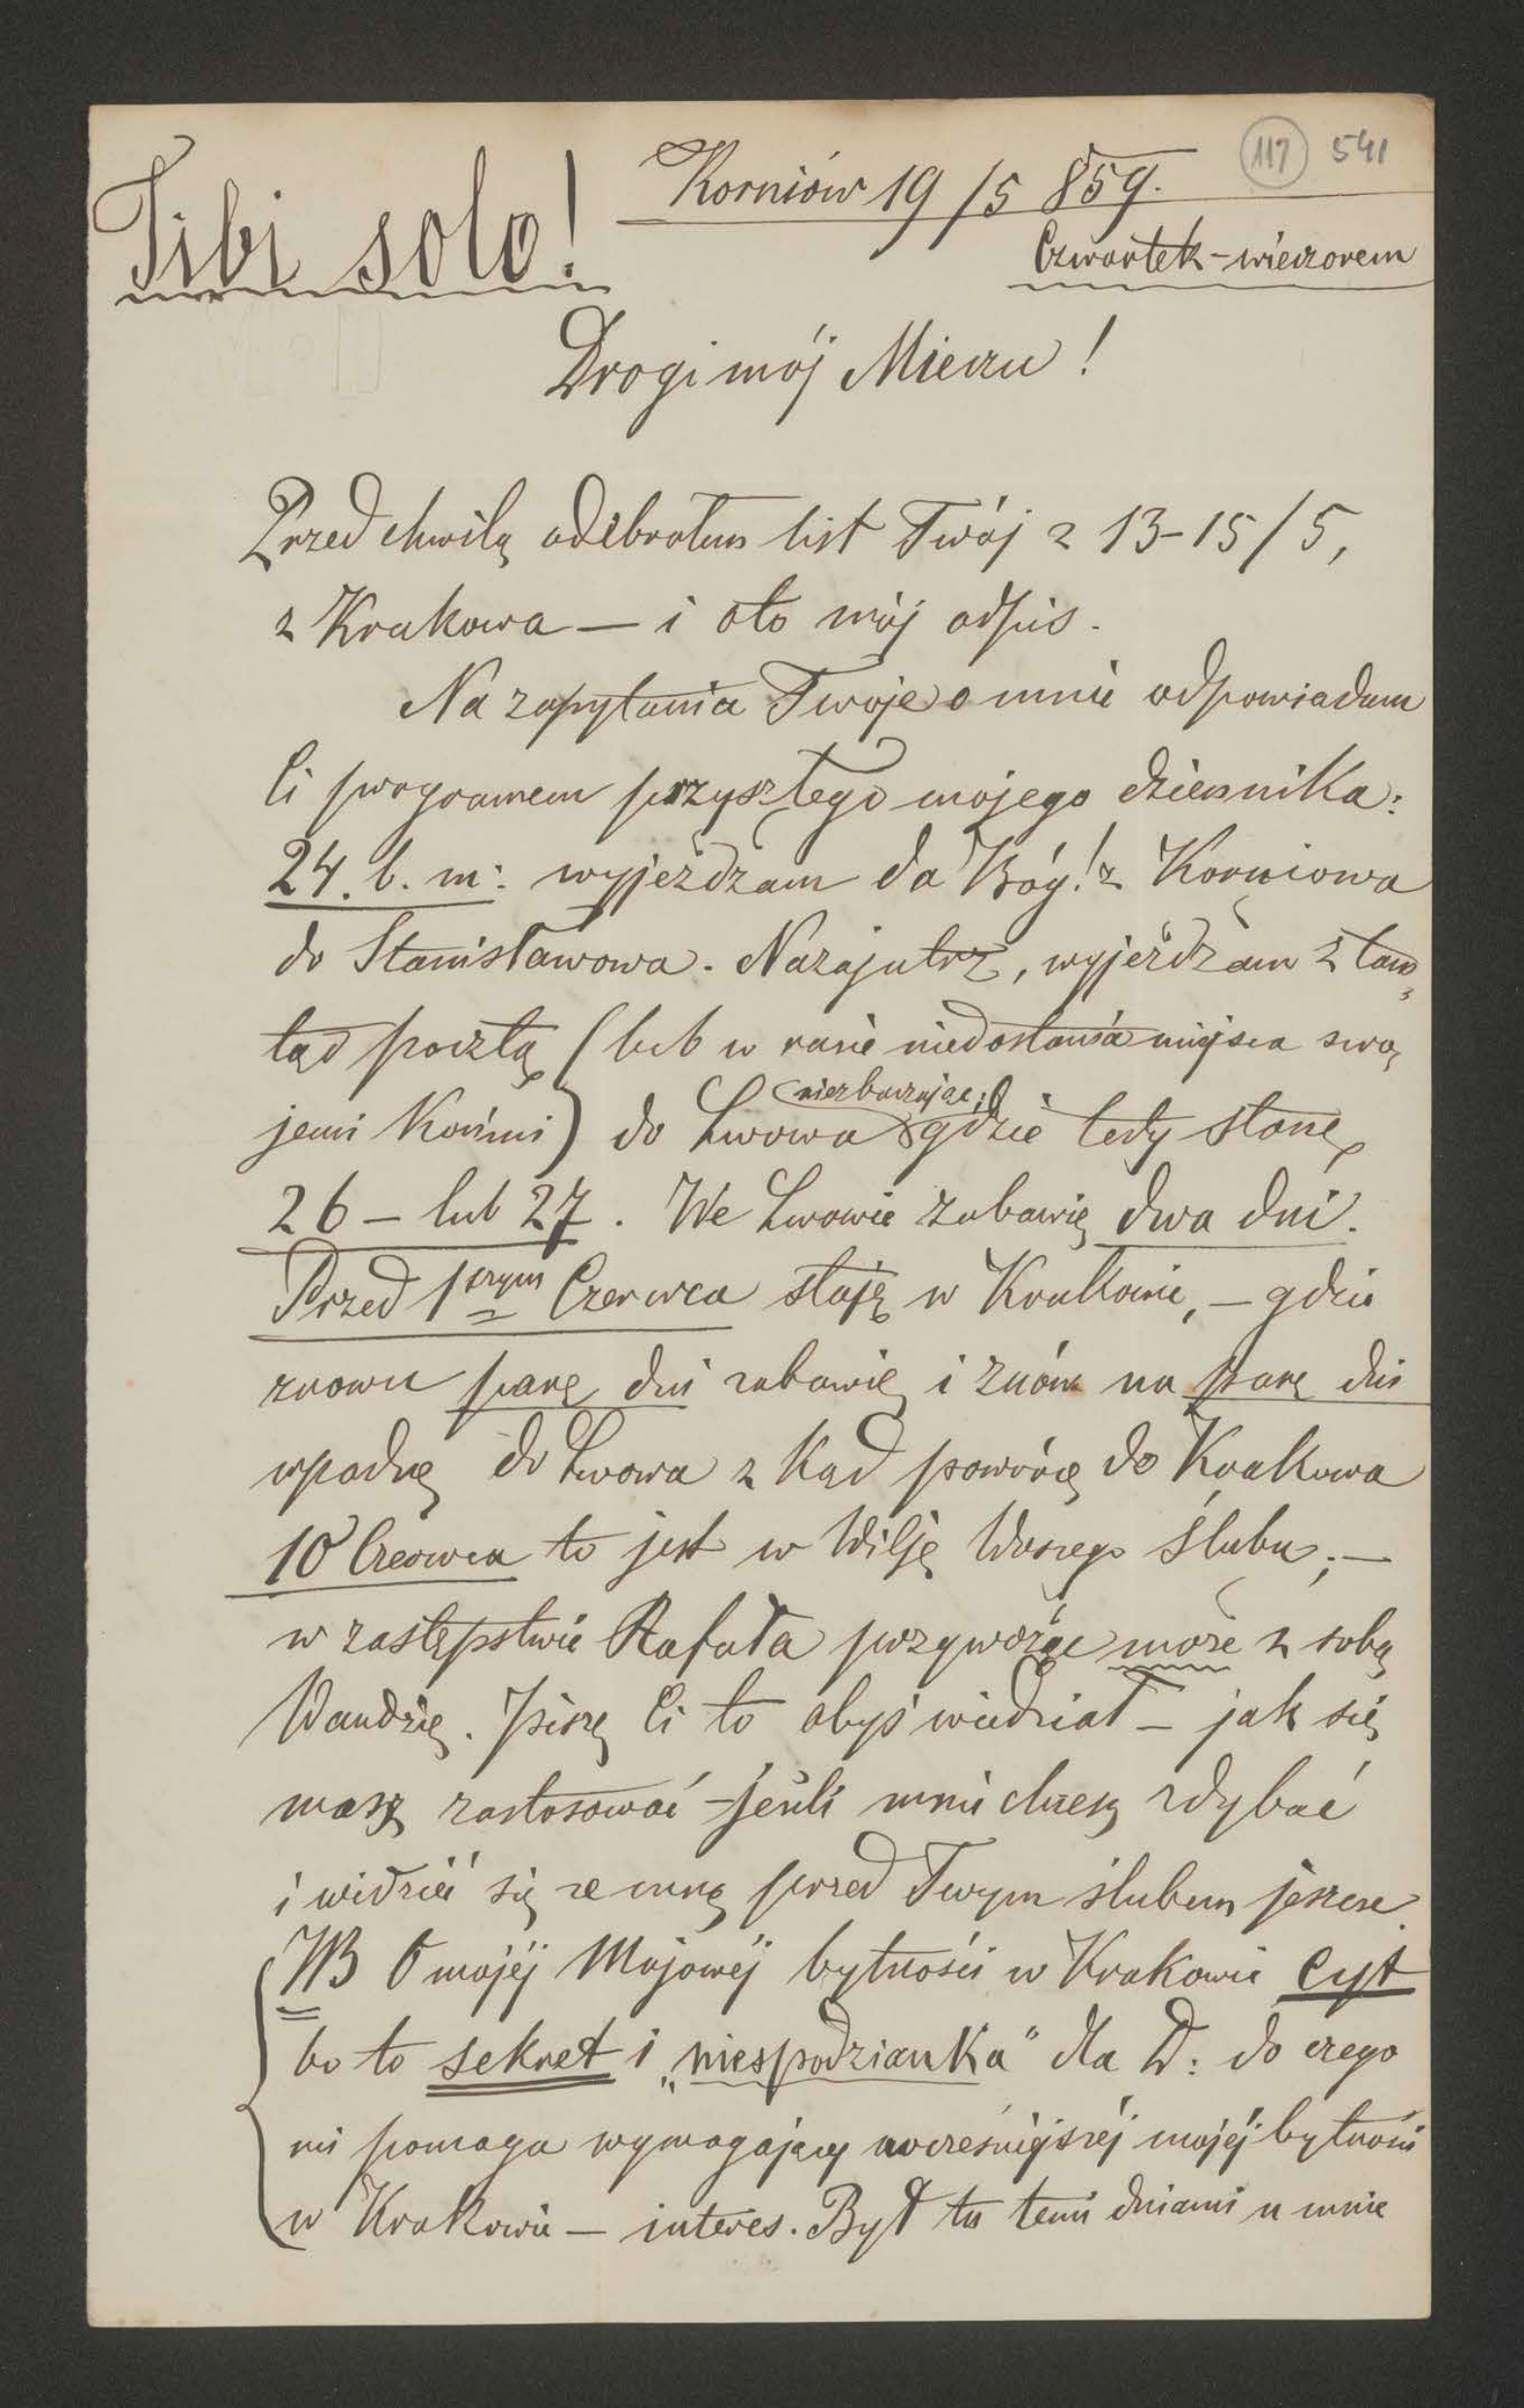 117 541
Tibi solo! Korniów 19/5 859.
Czwartek - wieczorem
Drogi mój Mieczu!
Przed chwilą odebrałem list Twój z 13-15/5,
z Krakowa — i oto mój odpis.
Na zapytania Twoje o mnie odpowiadam
Ci programem przyszłego mojego dziennika:
24. b. m: wyjeżdżam da Bóg! z Korniowa
do Stanisławowa. Nazajutrz, wyjeżdżam z tam
tąd pocztą (lub w razie niedostania miejsca swo
jemi Końmi) do Lwowa gdzie tedy stanę
26 — lub 27. We Lwowie zabawię dwa dni.
Przed 1szym Czerwca staję w Krakowie, — gdzie
znowu parę dni zabawię i znów na parę dni
wpadnę do Lwowa z Kąd powrócę do Krakowa
10 Czerwca to jest w Wilję Waszego Ślubu; —
w zastępstwie Rafała przywożąc może z sobą
Wandzię. Piszę Ci to abyś wiedział — jak się
masz zastosować — jeśli mnie chcesz zdybać
i widzieć się ze mną przed Twym ślubem jeszcze.
NB O mojéj Majowéj bytności w Krakowie cyt
bo to sekret i „niespodzianka" dla D: do czego
mi pomaga wymagający wcześniejszéj mojéj bytności
w Krakowie — interes. Był tu temi dniami u mnie